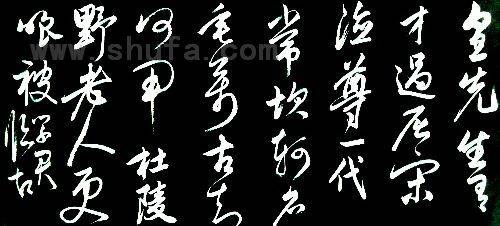 皇先生有
才過屈宋
德尊一代
常坎軻名
垂萬古知
何用杜陵
野老人更
被